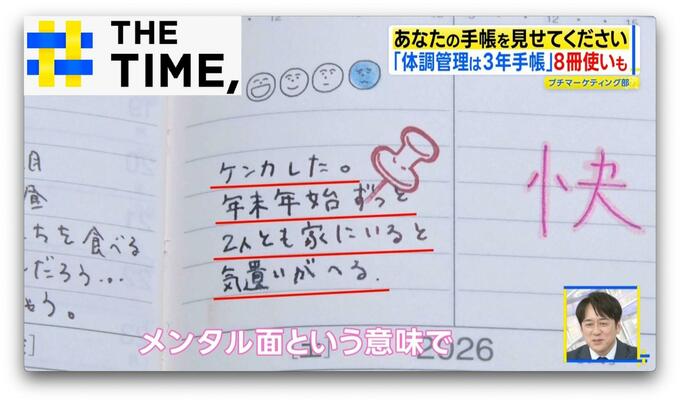 THE
TIME,
あなたの手帳を見せてください
「体調管理は3年手帳」8冊使いも
プチマーケティング部
ケンカした。
年末年始ずっと
2人とも家にいると
気遣いがへる.
快
昼
ちを食べる
だろう...
う。
メンタル面という意味で
2026